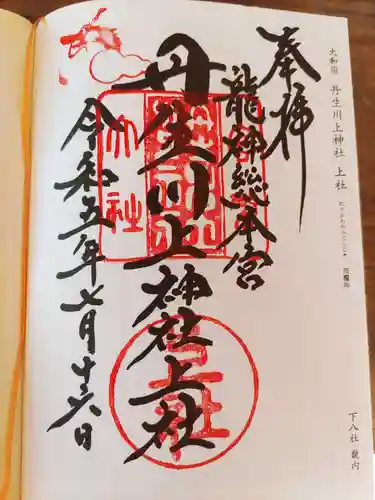 大和国 丹生川上神社 上社
下八社 畿内
奉拝
龍神総本宮
丹生川上神社上社
令和五年七月十六日